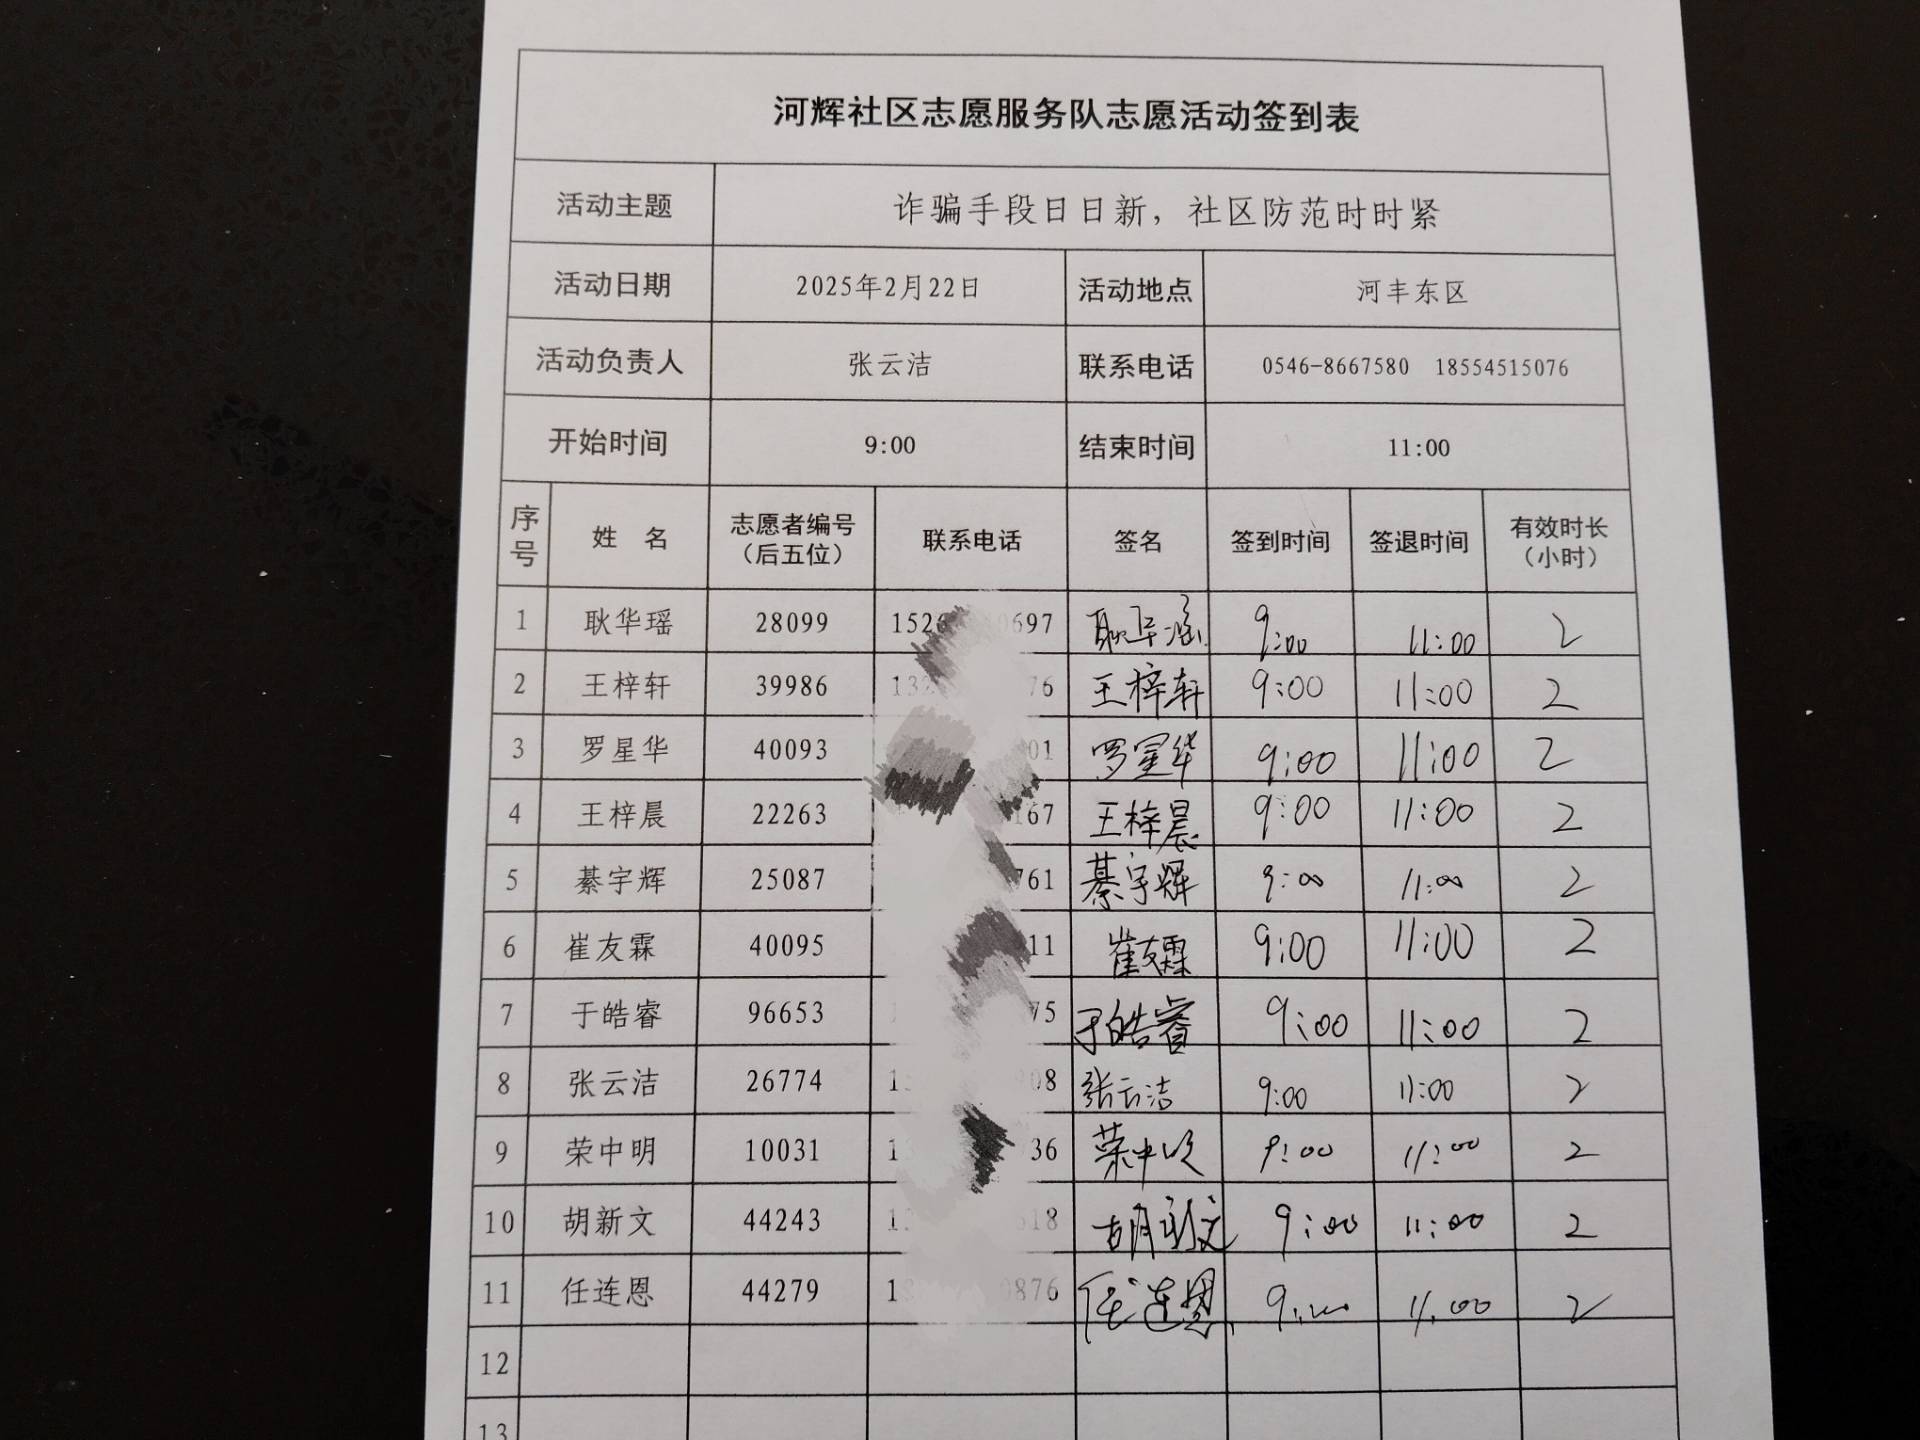 河辉社区志愿服务队志愿活动签到表
活动主题 诈骗手段日日新，社区防范时时紧
活动日期 2025年2月22日 活动地点 河丰东区
活动负责人 张云洁 联系电话 0546-8667580 18554515076
开始时间 9:00 结束时间 11:00
序号 姓 名 志愿者编号（后五位） 联系电话 签名 签到时间 签退时间 有效时长（小时）
1 耿华瑶 28099 152 697 9:00 11:00 2
2 王梓轩 39986 13 76 王梓轩 9:00 11:00 2
3 罗星华 40093 01 罗星华 9:00 11:00 2
4 王梓晨 22263 167 王梓晨 9:00 11:00 2
5 綦宇辉 25087 761 綦宇辉 9:00 11:00 2
6 崔友霖 40095 11 崔友霖 9:00 11:00 2
7 于皓睿 96653 75 于皓睿 9:00 11:00 2
8 张云洁 26774 1 908 张云洁 9:00 11:00 2
9 荣中明 10031 1 36 荣中明 9:00 11:00 2
10 胡新文 44243 1 618 胡新文 9:00 11:00 2
11 任连恩 44279 1 0876 任连恩 9:00 11:00 2
12
13